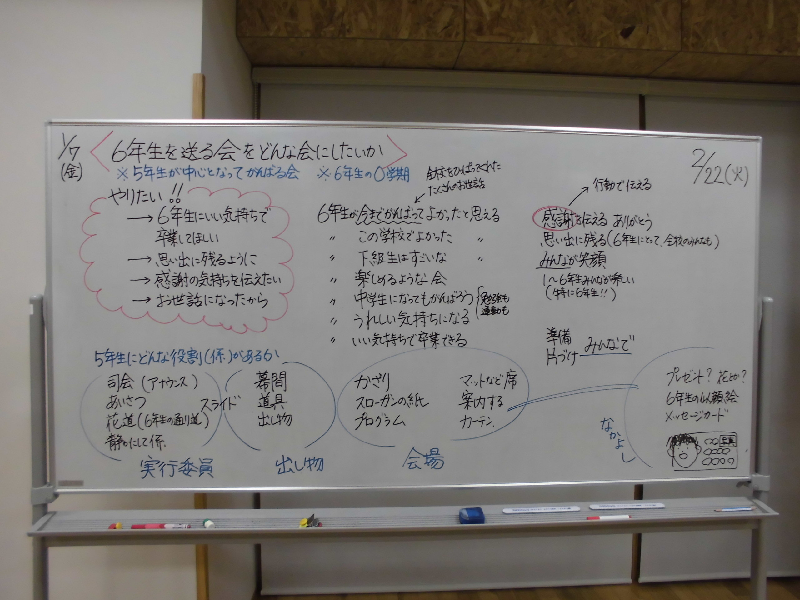 1/7
(金)
6年生を送る会をどんな会にしたいか
2/22(火)
※5年生が中心となってがんばる会 ※6年生の〇学期
全校をひっぱってくれた
たくさんのお世話
やりたい!!
→6年生にいい気持ちで
卒業してほしい
→思い出に残るように
→感謝の気持ちを伝えたい
→お世話になったから
6年生が今までがんばってよかったと思える
〃 この学校でよかった 〃
〃 下級生はすごいな 〃
〃 楽しめるような会
〃 中学生になってもがんばろう
勉強も
運動も
〃 うれしい気持ちになる
〃 いい気持ちで卒業できる
行動で伝える
感謝を伝える ありがとう
思い出に残る(6年生にとって、全校のみんなも)
みんなが笑顔
1~6年生みんなが楽しい
(特に6年生!!)
準備
片づけ みんなで
5年生にどんな役割(係)があるか
司会(アナウンス)
あいさつ
花道(6年生の通り道)
静かにして係
実行委員
スライド
幕間
道具
出し物
出し物
かざり
スローガンの紙
プログラム
マットなど席
案内する
カーテン
会場
プレゼント?花とか?
6年生の似顔絵
メッセージカード
なかよし